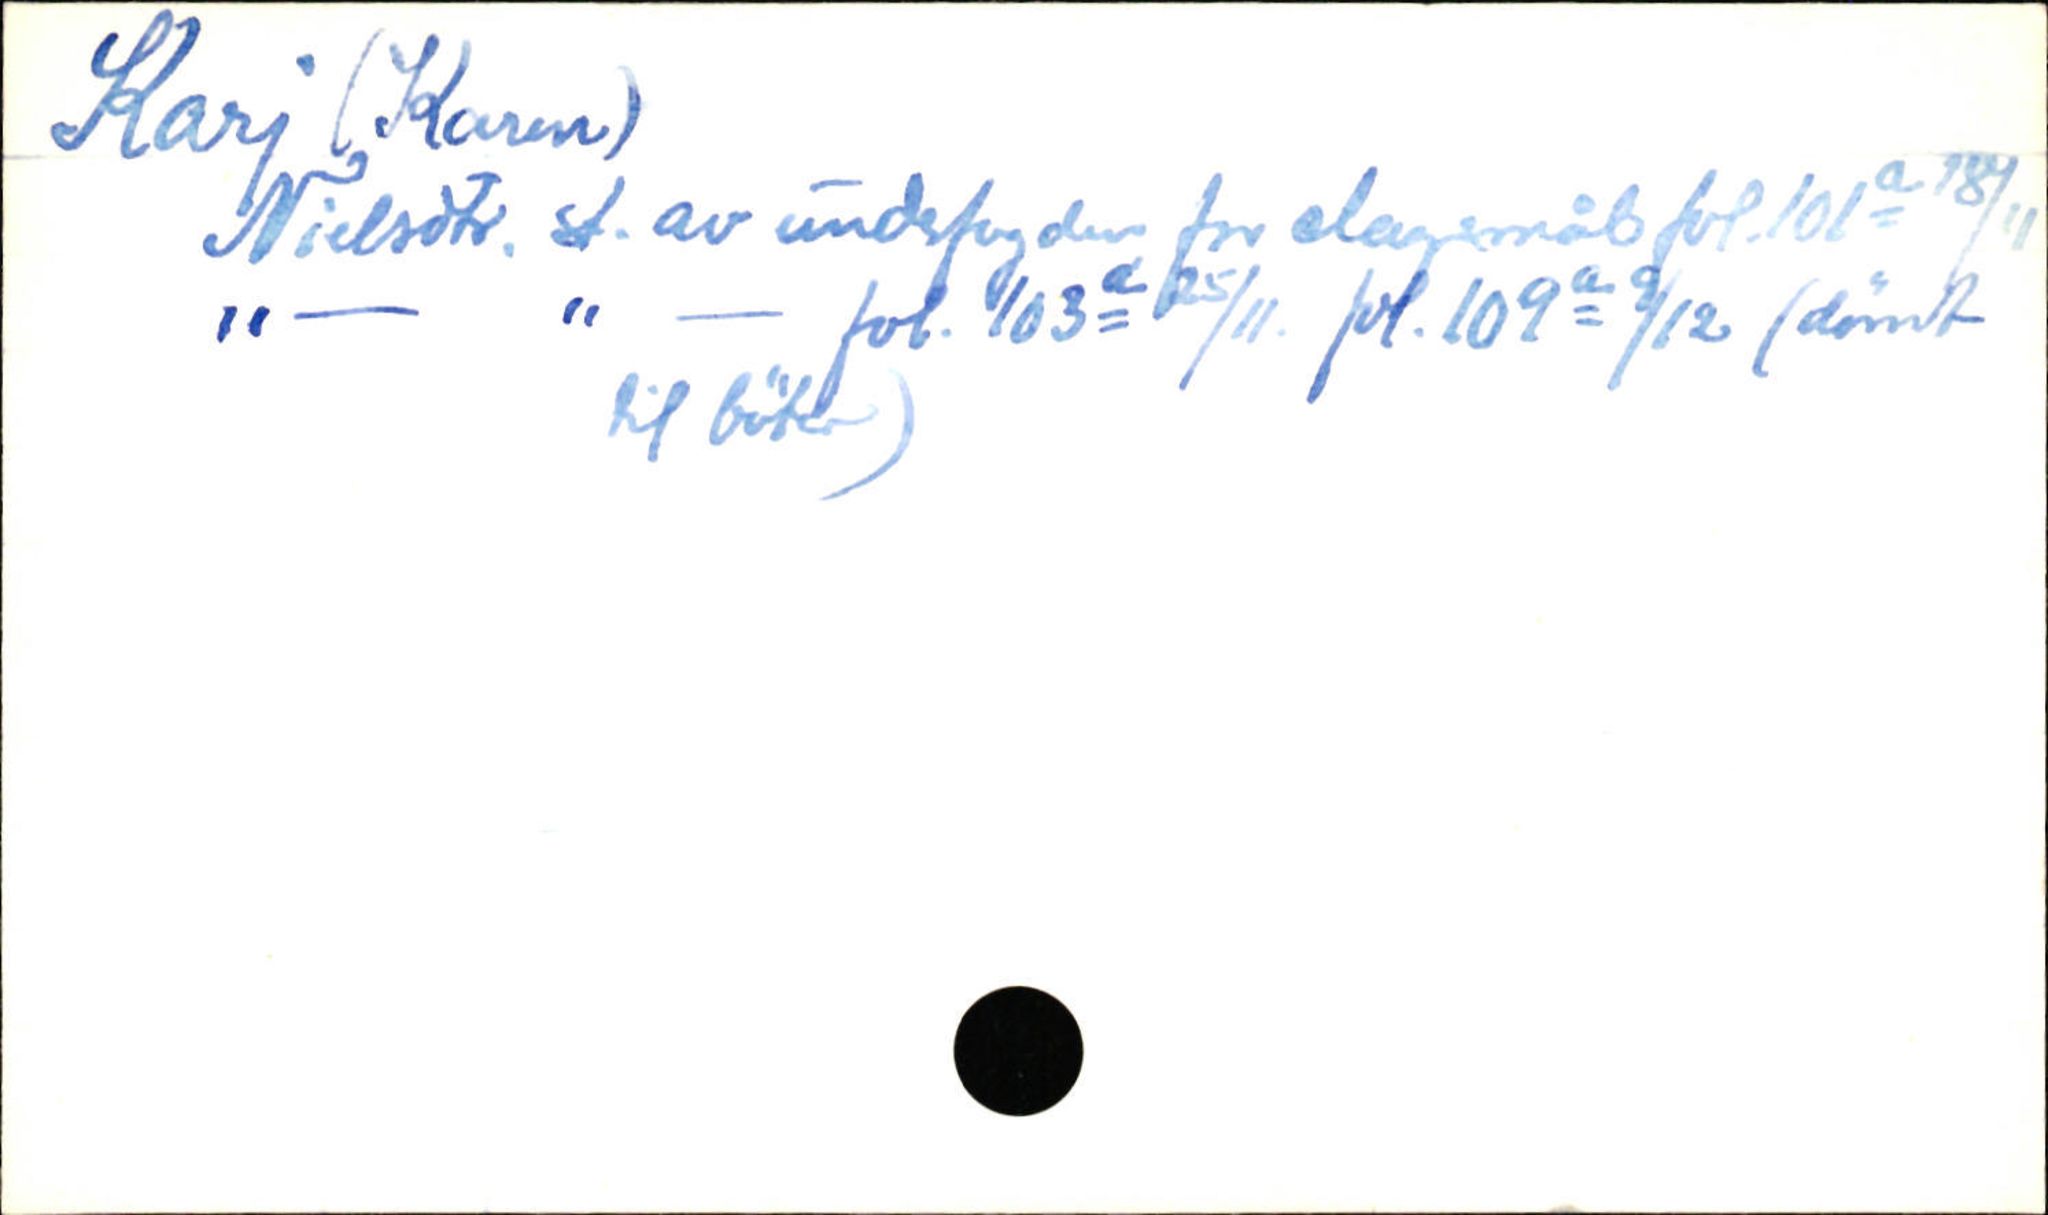 Karj (Karen)
Nielsdtr. st. av undsfogden for elagsmåls fol. 101a 18/11
" — " — fol. 103a 25/11. fol. 109a 9/12 (dömt
til böter)